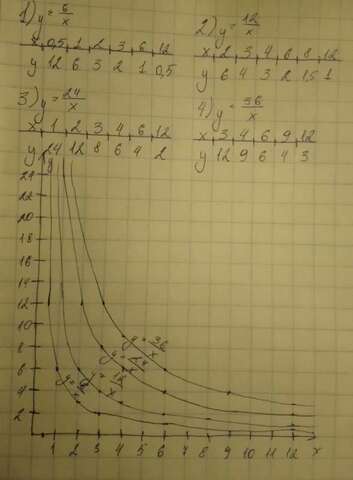 1) y = 6/x
x 0,5 1 2 3 6 12
y 12 6 3 2 1 0,5
2) y = 12/x
x 2 3 4 6 8 12
y 6 4 3 2 1,5 1
3) y = 24/x
x 1 2 3 4 6 12
y 24 12 8 6 4 2
4) y = 36/x
x 3 4 6 9 12
y 12 9 6 4 3
y
24
22
20
18
16
14
12
10
8
6
4
2
y = 6/x
y = 12/x
y = 24/x
y = 36/x
1 2 3 4 5 6 7 8 9 10 11 12 x